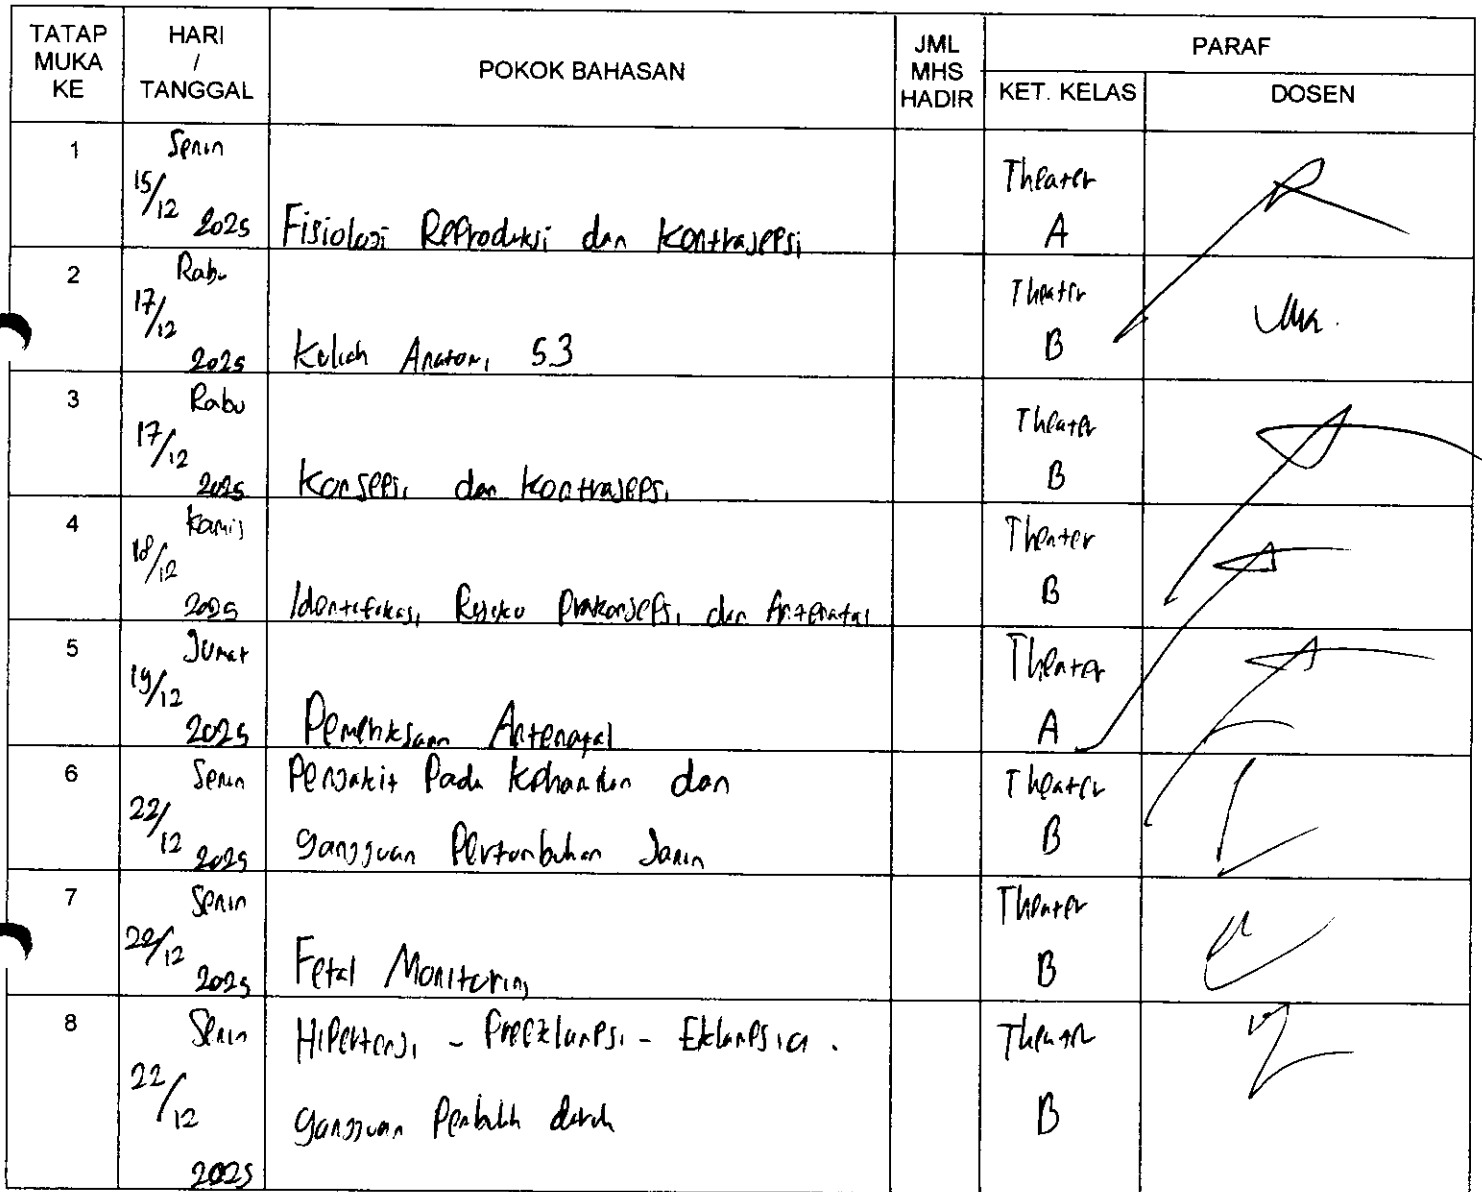 TATAP MUKA KE | HARI / TANGGAL | POKOK BAHASAN | JML MHS HADIR | PARAF
KET. KELAS | DOSEN
1 | Senin 15/12 2025 | Fisiologi Reproduksi dan Kontrasepsi | Theater A
2 | Rabu 17/12 2025 | Kuliah Anatomi 53 | Theater B
3 | Rabu 17/12 2025 | Konsepsi dan Kontrasepsi | Theater B
4 | Kamis 18/12 2025 | Identifikasi Resiko Prakonsepsi dan Antenatal | Theater B
5 | Jumat 19/12 2025 | Pemeriksaan Antenatal | Theater A
6 | Senin 22/12 2025 | Penyakit Pada Kehamilan dan
gangguan Pertumbuhan Janin | Theater B
7 | Senin 22/12 2025 | Fetal Monitoring | Theater B
8 | Senin 22/12 2025 | Hipertensi - Preeklampsi - Eklampsia .
gangguan Pembuluh darah | Theater B